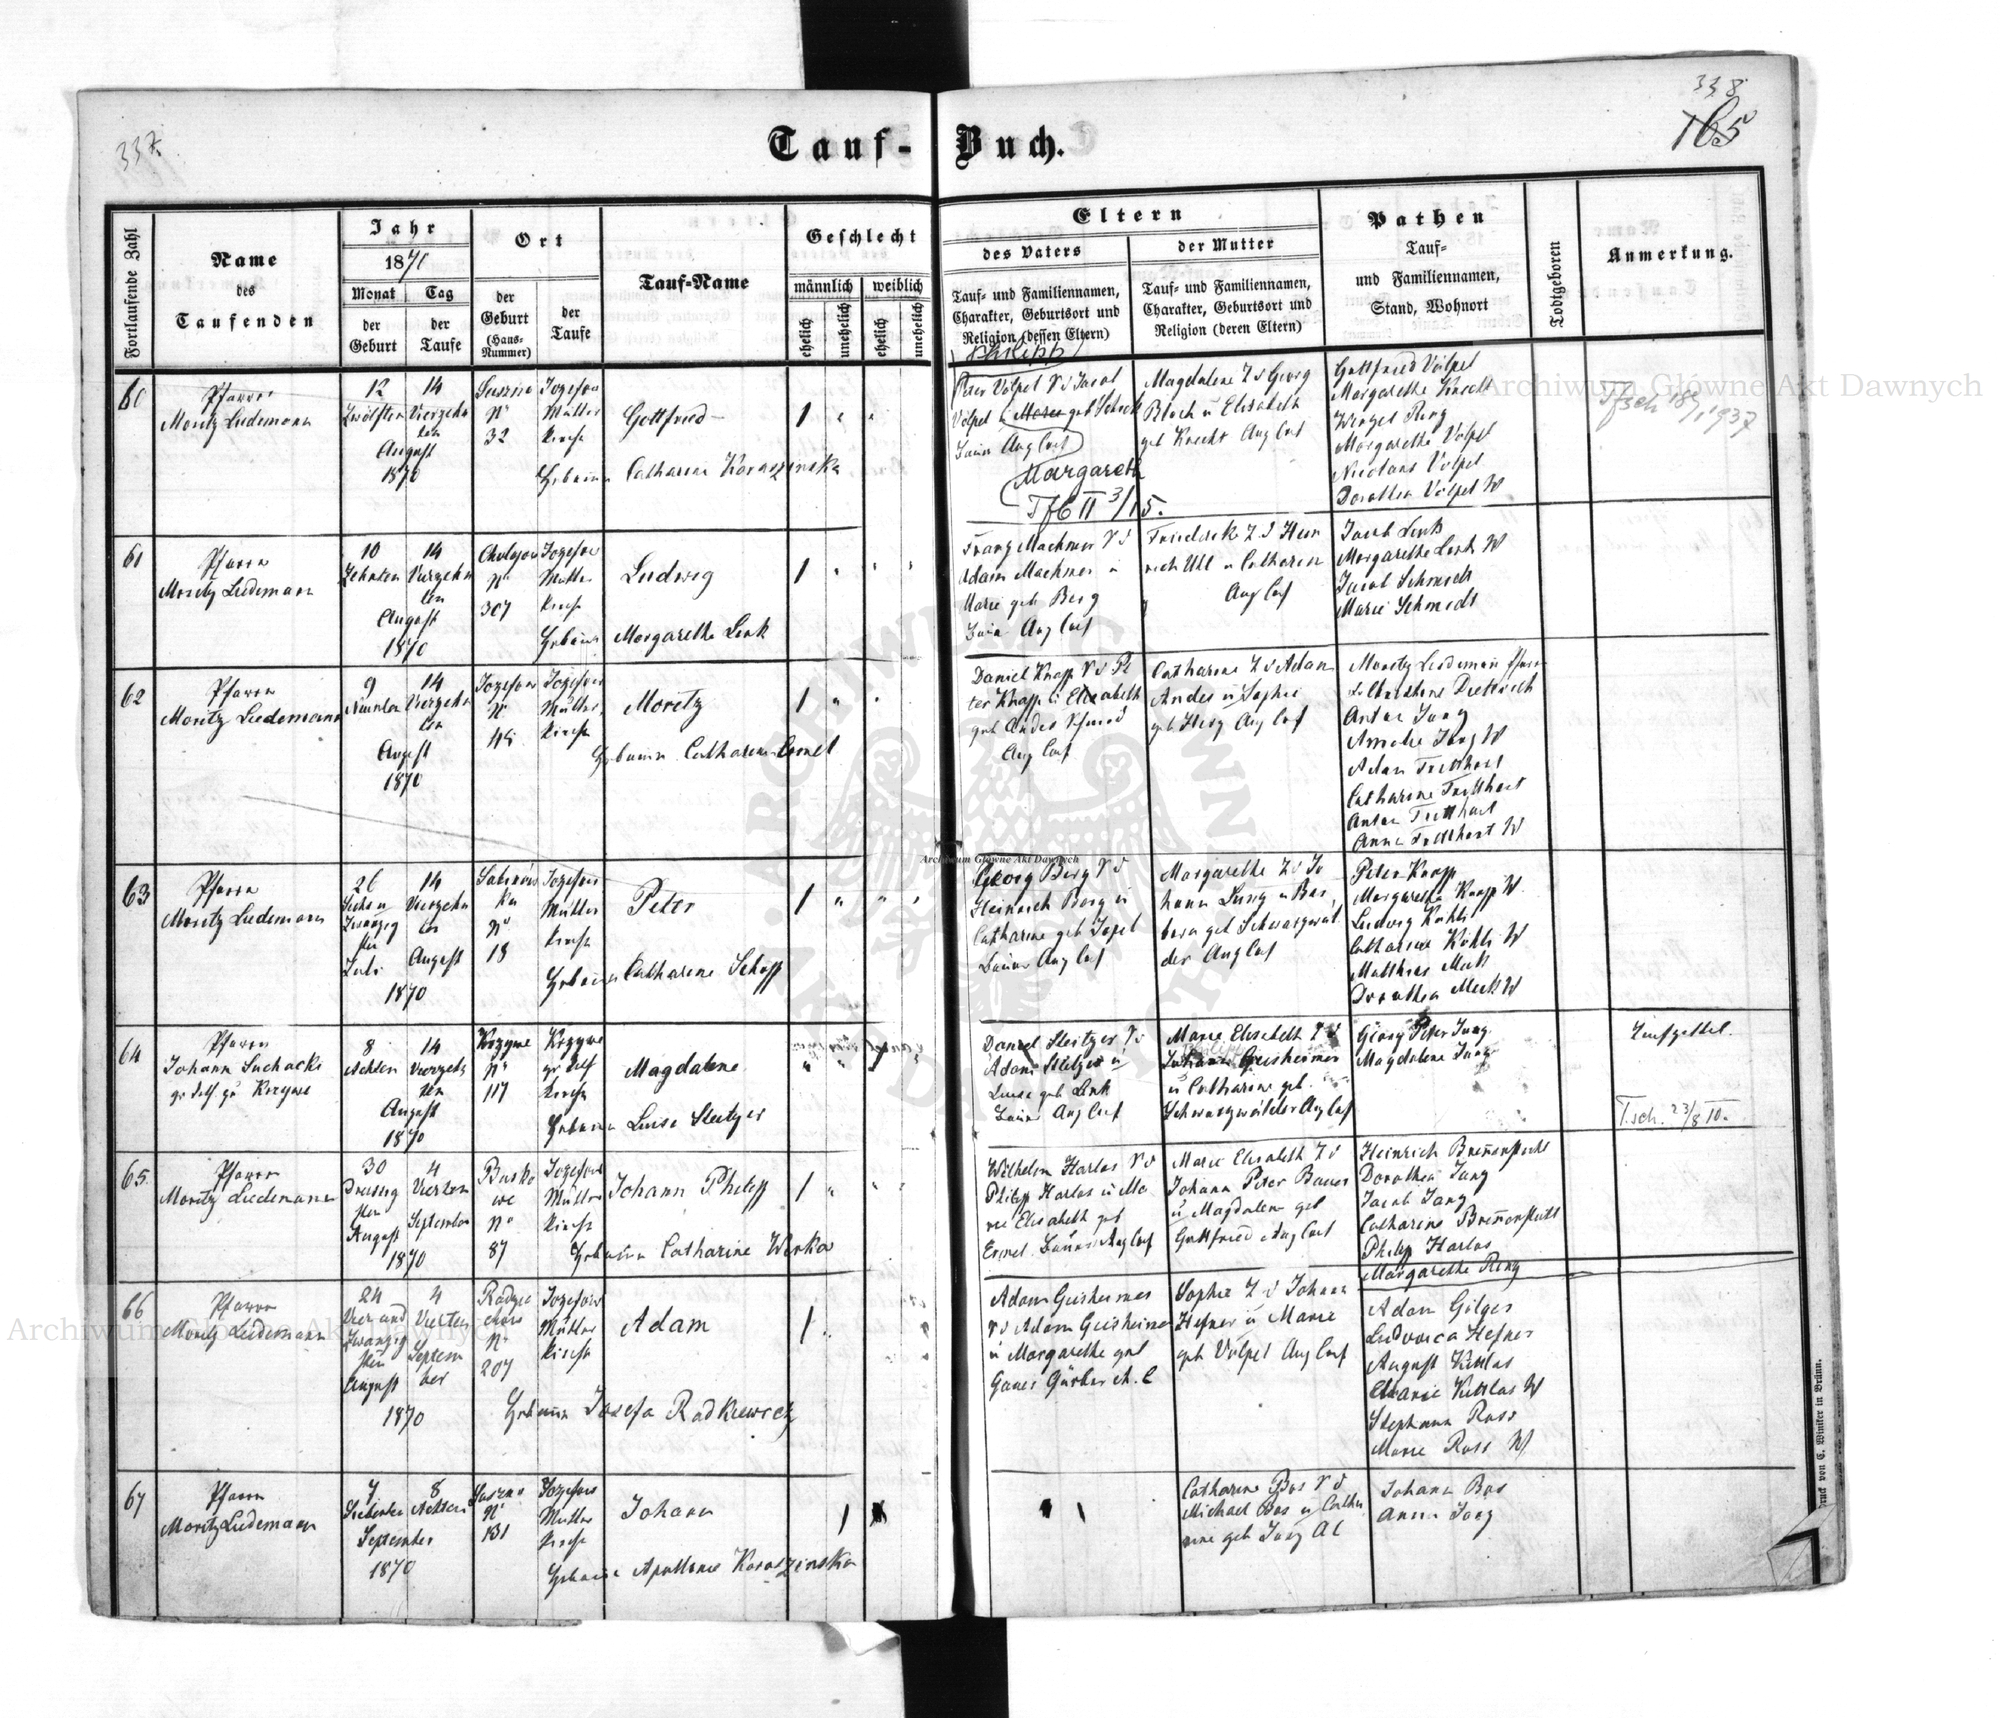 337.
338
165
Tauf-Buch.
Fortlaufende Zahl
Name
des
Taufenden
Jahr
1870
Monat
Tag
der
Geburt
der
Taufe
Ort
der
Geburt
(Haus-
Nummer)
der
Taufe
Tauf-Name
Geschlecht
männlich
weiblich
ehelich
unehelich
ehelich
unehelich
Eltern
des Vaters
Tauf- und Familiennamen,
Charakter, Geburtsort und
Religion (dessen Eltern)
der Mutter
Tauf- und Familiennamen,
Charakter, Geburtsort und
Religion (deren Eltern)
Pathen
Tauf-
und Familiennamen,
Stand, Wohnort
Todtgeboren
Anmerkung.
60
Pfarrer
Moritz Liedemann
12
Zwölften
14
Vierzehn
ten
August
1870
Suszno
No
32
Jozefow
Mutter
Kirche
Gottfried
1
Hebamme Catharine Koraszinska
Philipp
Peter Völpel S d Jacob
Völpel u geb Schick
Bauer Aug Conf
Margareth
Tfb II 3/15.
Magdalene T d Georg
Bloch u Elisabeth
geb Knecht Aug Conf
Gottfried Völpel
Margarethe Knecht
Wenzel Ring
Margarethe Völpel
Nicolaus Völpel
Dorothea Völpel W
Tfsch 18/1 1937
61
Pfarrer
Moritz Liedemann
10
Zehnten
14
Vierzehn
ten
August
1870
Cholojow
No
307
Jozefow
Mutter
Kirche
Ludwig
1
Hebamme Margarethe Lenk
Franz Machmer S d
Adam Machmer u
Marie geb Berg
Bauer Aug Conf
Friederike T d Hein
rich Uhl u Catharine
Aug Conf
Jacob Lenk
Margarethe Lenk W
Jacob Schmidt
Marie Schmidt
62
Pfarrer
Moritz Liedemann
9
Neunten
14
Vierzehn
ten
August
1870
Jozefow
No
45
Jozefow
Mutter
Kirche
Moritz
1
Hebamme Catharine Ermel
Daniel Knapp S d Pe
ter Knapp u Elisabeth
geb Andes Schmied
Aug Conf
Catharine T d Adam
Andes u Sophie
geb Herg Aug Conf
Moritz Liedemann Pfarrer
Christine Dieterich
Anton Jung
Amalie Jung W
Adam Tretthart
Catharine Tretthart
Anton Tretthart
Anna Tretthart W
63
Pfarrer
Moritz Liedemann
26
Sechs u
Zwanzig
sten
Juli
14
Vierzehn
ten
August
1870
Sabinow
ka
No
18
Jozefow
Mutter
Kirche
Peter
1
Hebamme Catharine Schopp
Georg Berg S d
Heinrich Berg u
Catharine geb Jopel
Bauer Aug Conf
Margarethe T d Jo
hann Jung u Bar
bara geb Schwarzwäl
der Aug Conf
Peter Knapp
Margaretha Knapp W
Ludwig Köhli
Catharine Köhli W
Matthias Meck
Dorothea Meck W
64
Pfarrer
Johann Suchacki
gr. kath. zu Krzywe
8
Achten
14
Vierzehn
ten
August
1870
Krzywe
No
117
Krzywe
gr. kath
Kirche
Magdalene
Hebamme Luise Steitzer
Daniel Steitzer S d
Adam Steitzer u
Luise geb Lenk
Bauer Aug Conf
Marie Elisabeth T d
Johann Geisheimer
u Catharine geb.
Schwarzwälder Aug Conf
Georg Peter Jung
Magdalene Jung
Taufzettel.
T.sch. 23/8 40.
65.
Pfarrer
Moritz Liedemann
30
Dreissig
sten
August
4
Vierten
September
1870
Busko
we
No
87
Jozefow
Mutter
Kirche
Johann Philipp
1
Hebamme Catharine Werka
Wilhelm Harlos S d
Philipp Harlos u Ma
rie Elisabeth geb
Ermel Bauer Aug Conf
Marie Elisabeth T d
Johann Peter Bauer
u Magdalene geb
Gottfried Aug Conf
Heinrich Bremenstuhl
Dorothea Jung
Jacob Jung
Catharine Bremenstuhl
Philipp Harlos
Margarethe Ring
66
Pfarrer
Moritz Liedemann
24
Vier und
Zwanzig
sten
August
4
Vierten
Septem
ber
1870
Radzie
chow
No
207
Jozefow
Mutter
Kirche
Adam
1
Hebamme Josefa Radkiewicz
Adam Geisheimer
S d Adam Geisheimer
u Margarethe geb
Gauer Gärber A. C
Sophie T d Johann
Hefner u Marie
geb Völpel Aug Conf
Adam Gilges
Ludovica Hefner
August Kittlas
Marie Kittlas W
Stephann Ross
Marie Ross W
67
Pfarrer
Moritz Liedemann
7
Siebenten
8
Achten
September
1870
Suszno
No
131
Jozefow
Mutter
Kirche
Johann
1
Hebamme Apollonie Koraszinska
Catharine Bos T d
Michael Bos u Catha
rine geb Jung A C
Johann Bos
Anna Jung
Druck von C. Winiker in Brünn.
Archiwum Główne Akt Dawnych
Archiwum Główne Akt Dawnych
Archiwum Główne Akt Dawnych